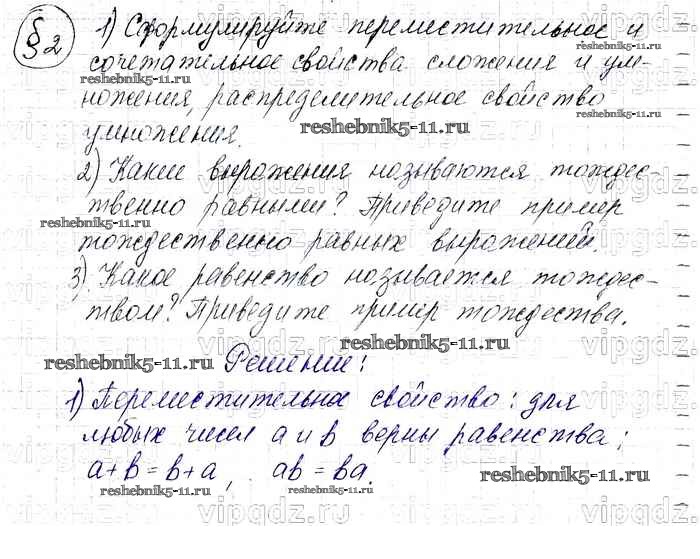 §2
1) Сформулируйте переместительное и
сочетательное свойства сложения и ум-
reshebnik5-11.ru reshebnik5-11.ru
ножения, распределительное свойство
умножения.
reshebnik5-11.ru
2) Какие выражения называются тождес-
твенно равными? Приведите пример
reshebnik5-11.ru
тождественно равных выражений.
3) Какое равенство называется тождес-
твом? Приведите пример тождества.
reshebnik5-11.ru
reshebnik5-11.ru
Решение:
1) Переместительное свойство: для
любых чисел a и b верны равенства:
a+b=b+a, ab=ba.
reshebnik5-11.ru
reshebnik5-11.ru reshebnik5-11.ru
vipgdz.ru vipgdz.ru vipgdz.ru